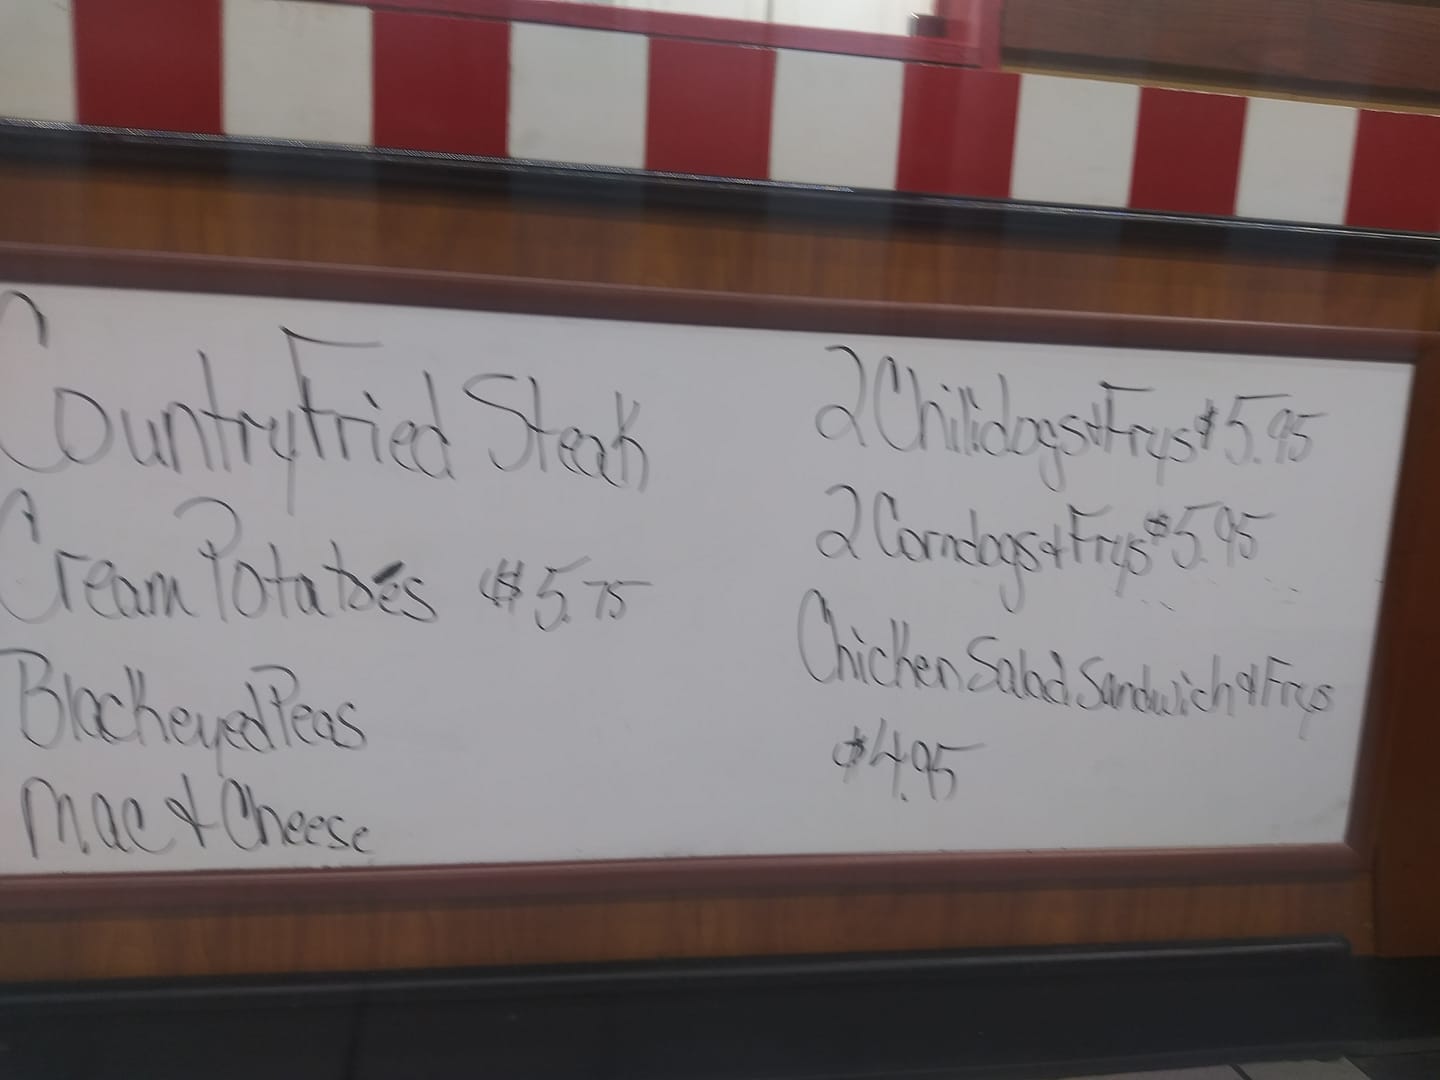 Country Fried Steak
Cream Potatoes $5.75
Blackeyed Peas
Mac & Cheese
2 Chilidogs & Frys $5.95
2 Corndogs & Frys $5.95
Chicken Salad Sandwich & Frys
$4.95